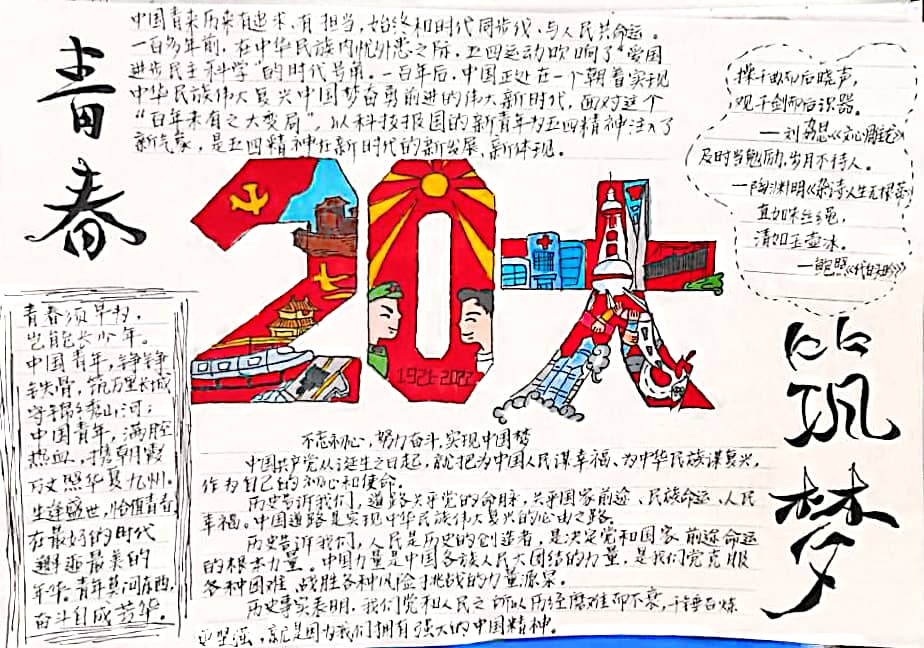 青春
中国青年历来有追求,有担当,始终和时代同步伐,与人民共命运。
一百多年前,在中华民族内忧外患之际,五四运动吹响了“爱国
进步民主科学”的时代号角。一百年后,中国正处在一个朝着实现
中华民族伟大复兴中国梦奋勇前进的伟大新时代,面对这个
“百年未有之大变局”,以科技报国的新青年为五四精神注入了
新气象,是五四精神在新时代的新发展,新体现。
操千曲而后晓声,
观千剑而后识器。
—刘勰《文心雕龙》
及时当勉励,岁月不待人。
—陶渊明《杂诗·人生无根蒂》
直如朱丝绳,
清如玉壶冰。
—鲍照《代白头吟》
20大
1921-2022
青春须早为,
岂能长少年。
中国青年,铮铮
铁骨,筑万里长城
守锦绣山河;
中国青年,满腔
热血,携朝霞
万丈照华夏九州。
生逢盛世,恰值青春,
在最好的时代
邂逅最美的
年华,青年莫问东西,
奋斗自成芳华。
不忘初心,努力奋斗,实现中国梦
中国共产党从诞生之日起,就把为中国人民谋幸福、为中华民族谋复兴,
作为自己的初心和使命。
历史告诉我们,道路关乎党的命脉,关乎国家前途、民族命运、人民
幸福。中国道路是实现中华民族伟大复兴的必由之路。
历史告诉我们,人民是历史的创造者,是决定党和国家前途命运
的根本力量。中国力量是中国各族人民大团结的力量,是我们党克服
各种困难、战胜各种风险挑战的力量源泉。
历史事实表明,我们党和人民之所以历经磨难而不衰,千锤百炼
更坚强,就是因为我们拥有强大的中国精神。
筑梦